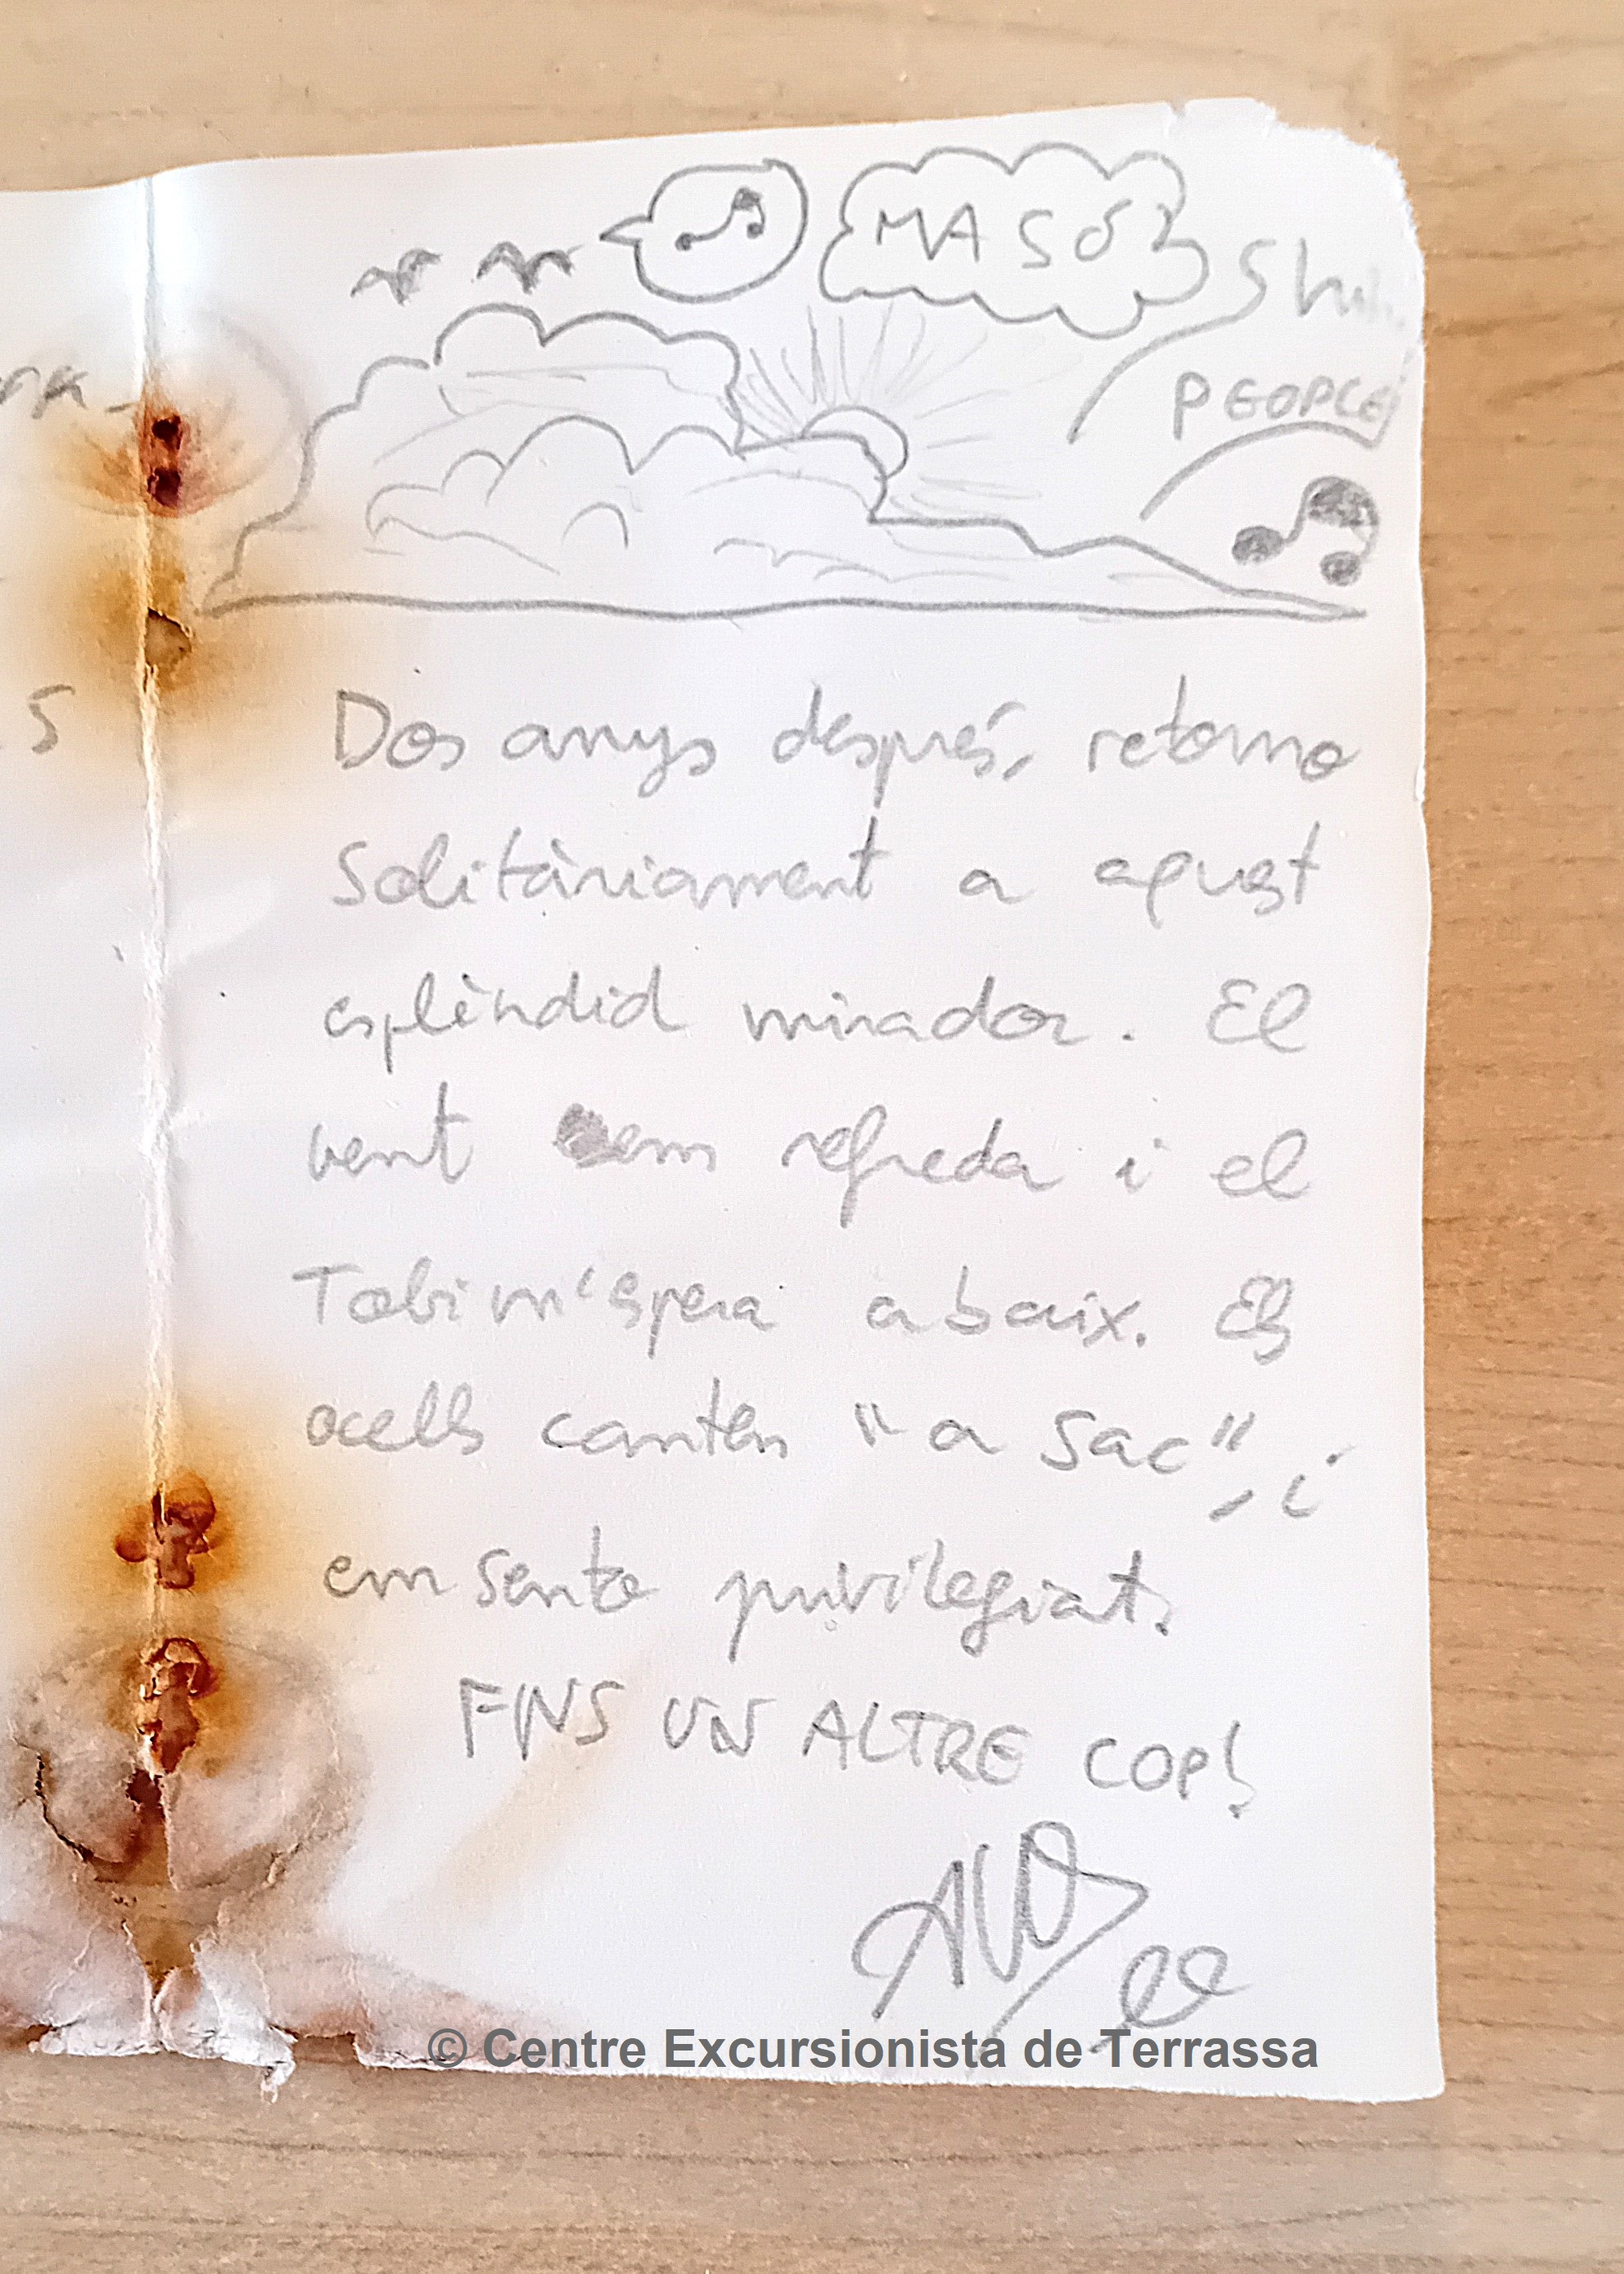 MASÓ
PEOPLE
Dos anys després, retorno
Solitàriament a aquest
esplèndid mirador. El
vent em refreda i el
Tobi m'espera abaix. Els
ocells canten "a sac", i
em sento privilegiat.
FINS UN ALTRE COP!
© Centre Excursionista de Terrassa